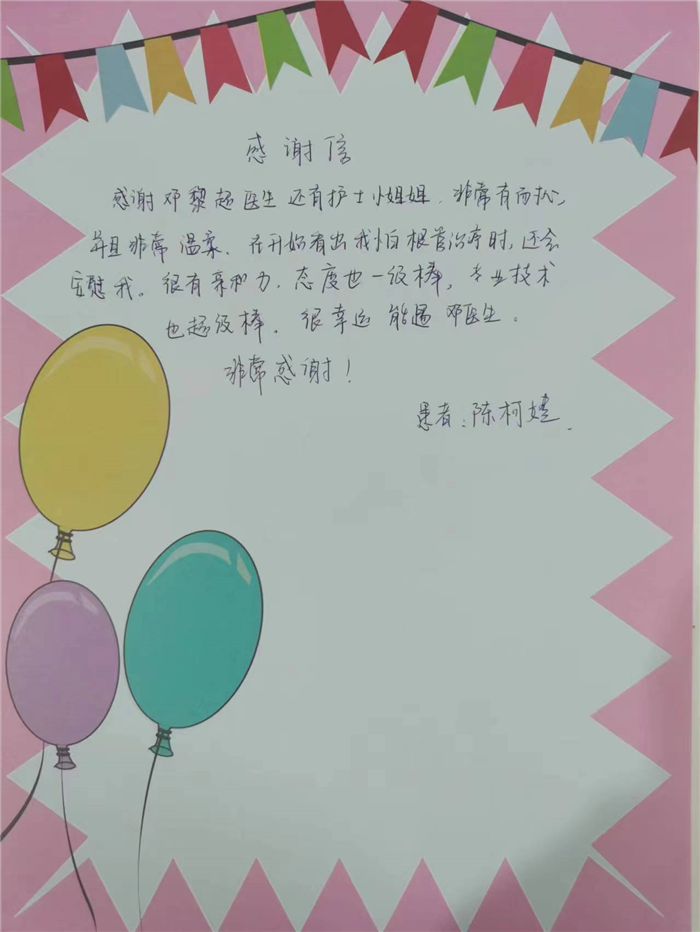 感谢信
感谢邓黎超医生还有护士小姐姐，非常有耐心，
并且非常温柔，在开始看出我怕根管治疗时，还会
安慰我。很有亲和力，态度也一级棒，专业技术
也超级棒，很幸运能遇邓医生。
非常感谢！
患者：陈柯婕